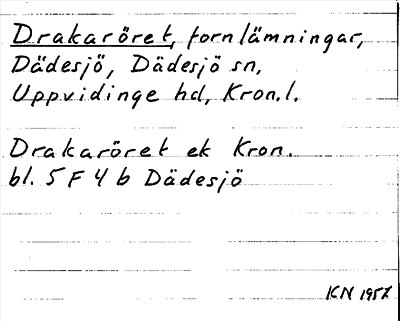 Drakaröret, fornlämningar,
Dädesjö, Dädesjö sn,
Uppvidinge hd, Kron.l.
Drakaröret ek Kron.
bl. 5 F 4 b Dädesjö
KN 1957